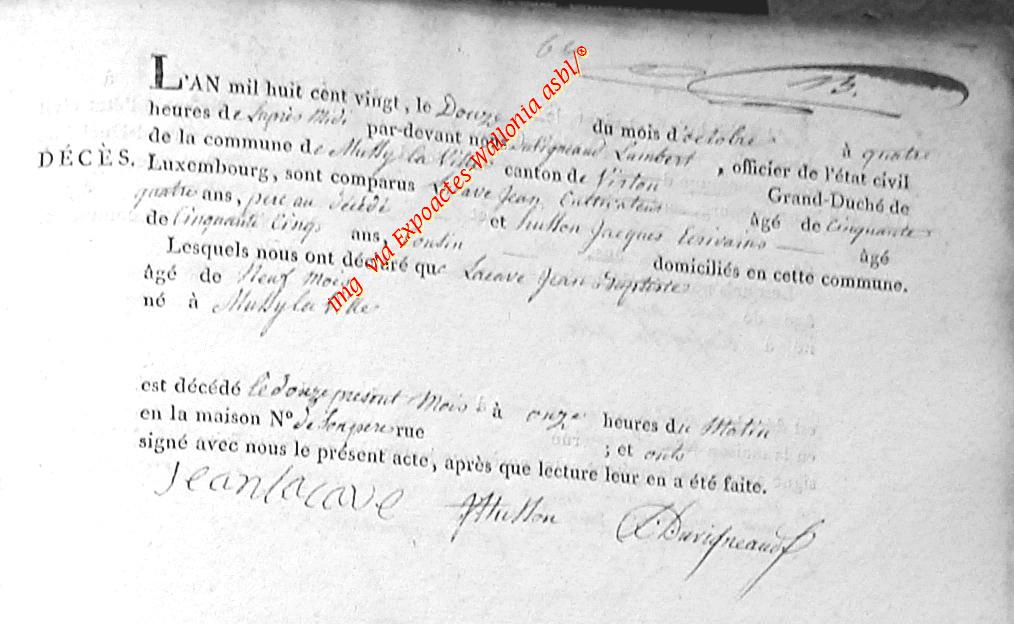 13.
L'AN mil huit cent vingt, le Douze du mois d'octobre à quatre
heures de l'après Midi par-devant nous Duvigneaud Lambert, officier de l'état civil
de la commune de Mussy la Ville canton de Virton Grand-Duché de
DÉCÈS.
Luxembourg, sont comparus Lacave Jean Cultivateur âgé de Cinquante
quatre ans, pere au décédé et husson Jacques Ecrivain âgé
de Cinquante Cinq ans, Cousin domiciliés en cette commune.
Lesquels nous ont déclaré que Lacave Jean Baptiste
âgé de Neuf Mois
né à Mussy la Ville
est décédé le douze présent Mois à onze heures du Matin
en la maison N° de son pere rue ; et onts
signé avec nous le présent acte, après que lecture leur en a été faite.
Jean lacave JHusson LDuvigneaud
img via Expoactes-Wallonia asbl/®